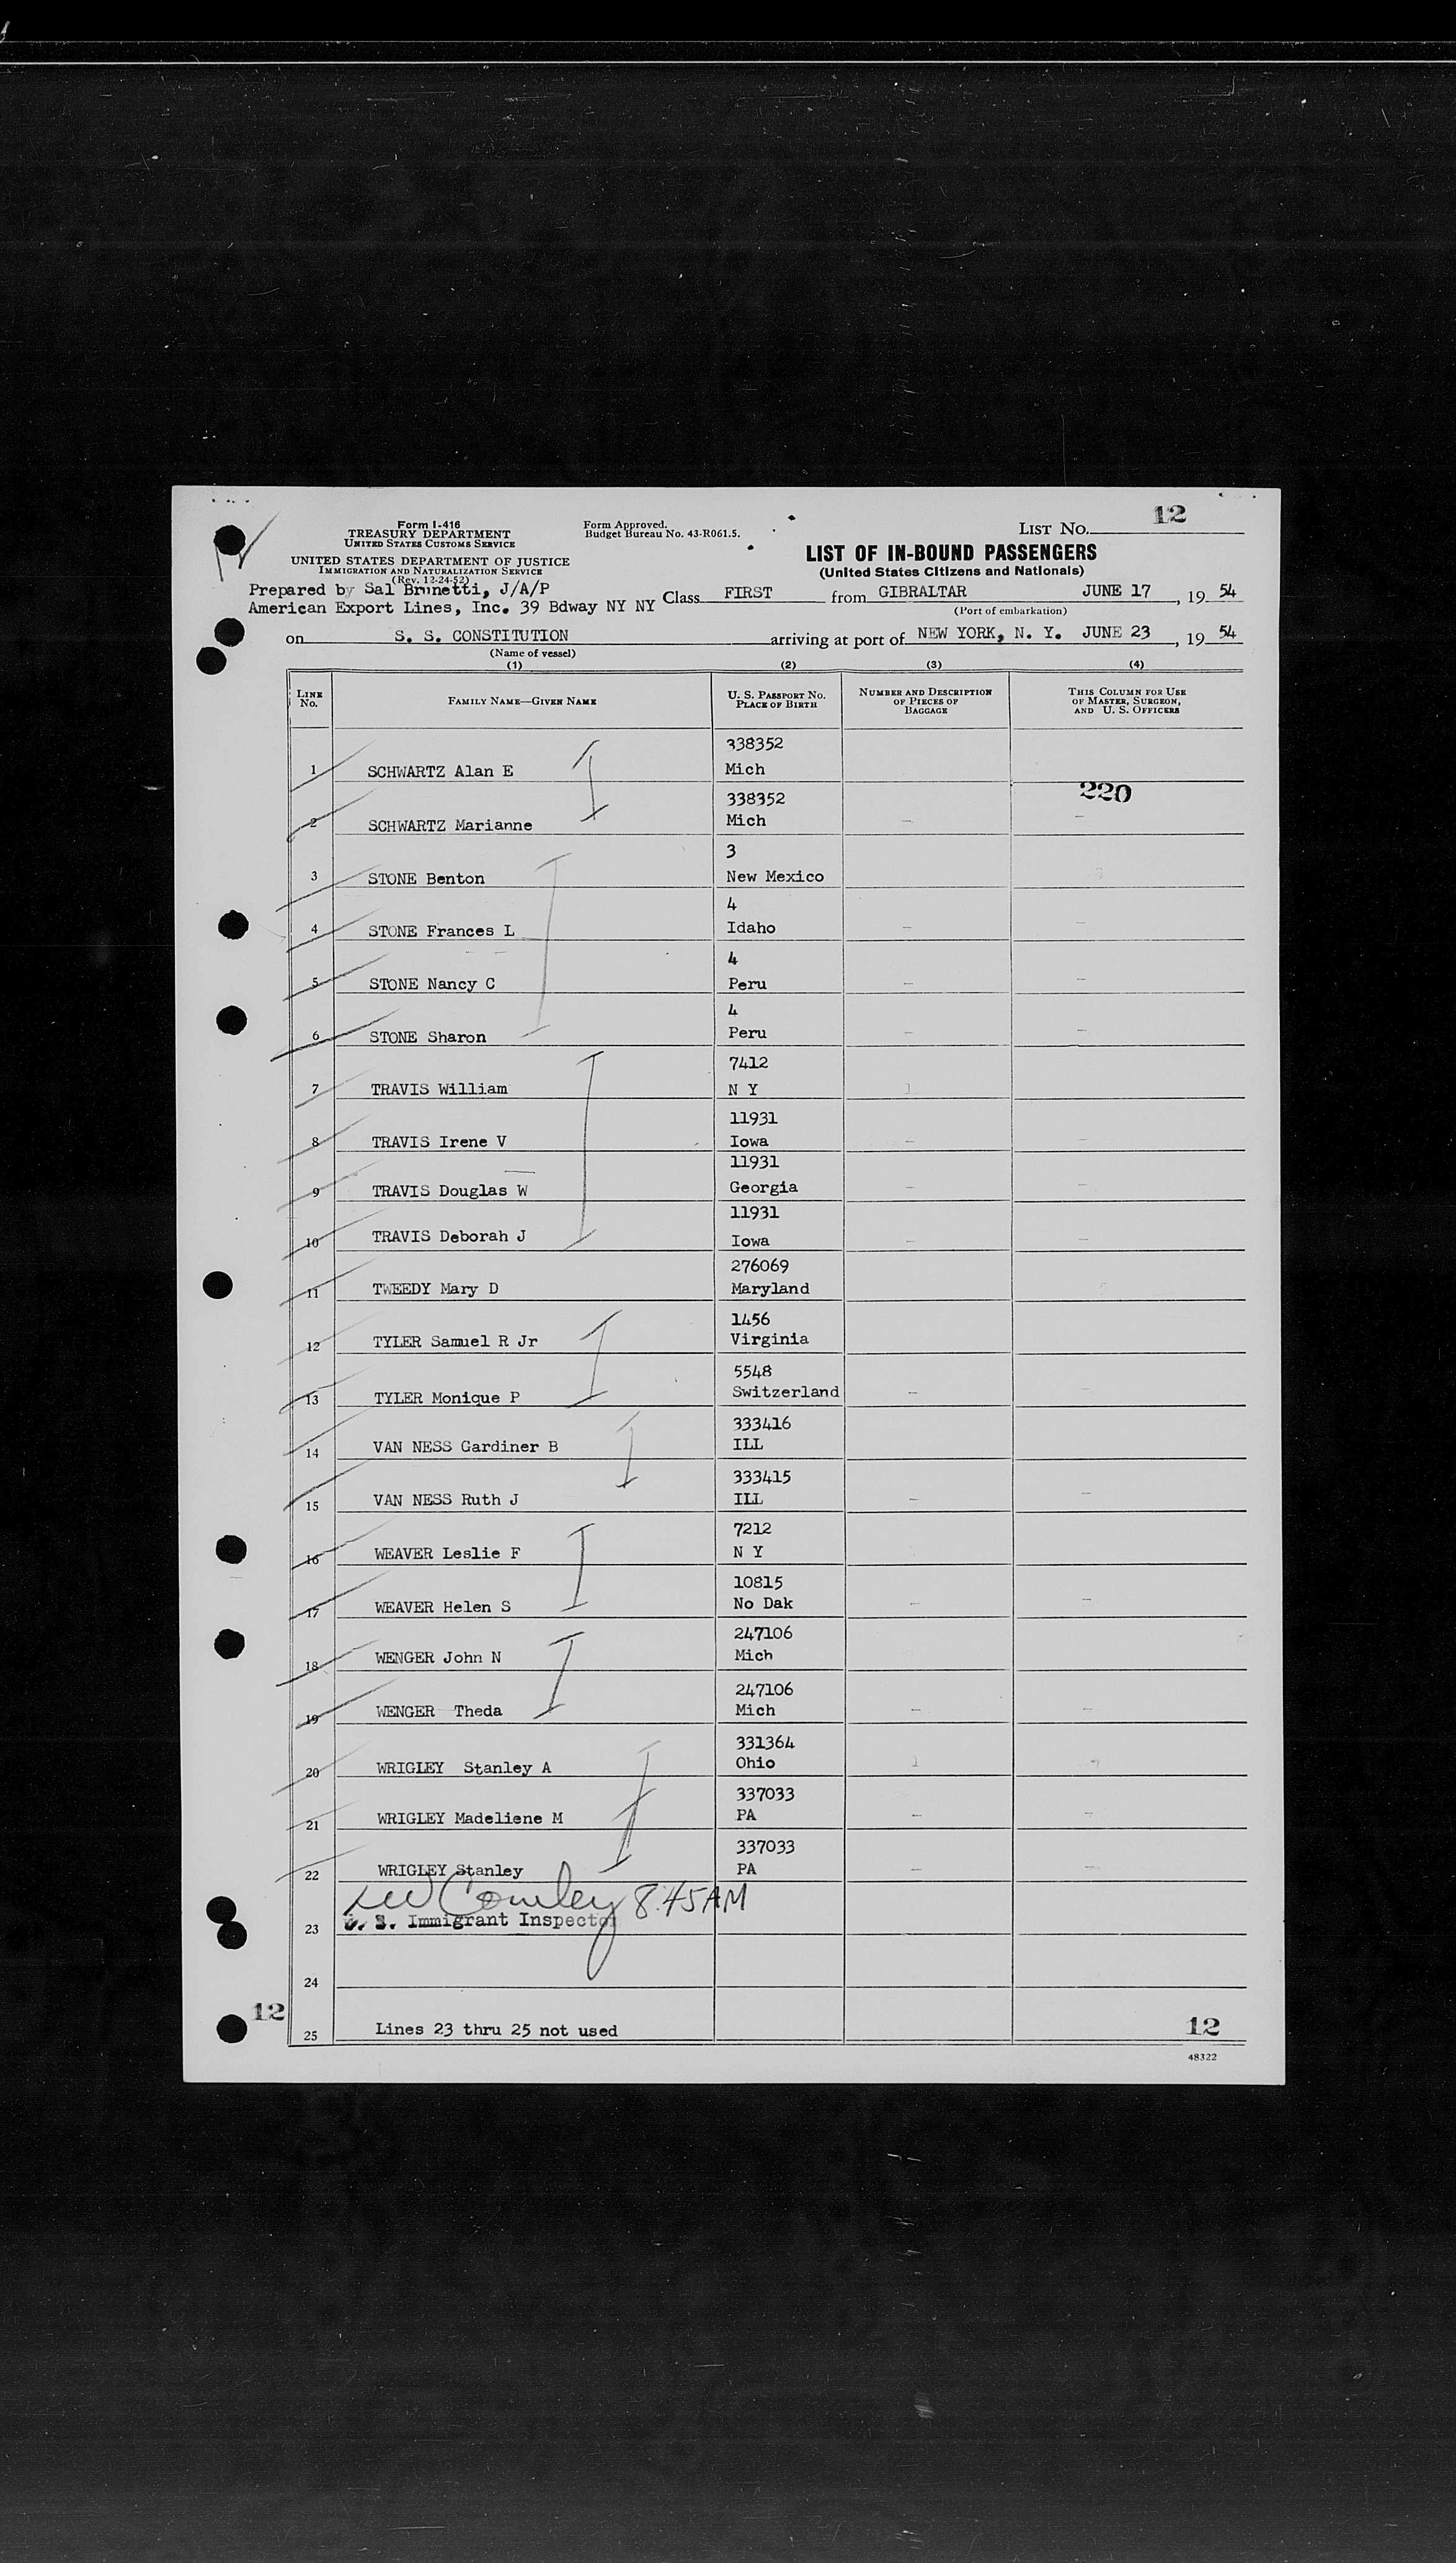 12
LIST No.
Form I-416
TREASURY DEPARTMENT
UNITED STATES CUSTOMS SERVICE
Form Approved.
Budget Bureau No. 43-R061.5.
UNITED STATES DEPARTMENT OF JUSTICE
IMMIGRATION AND NATURALIZATION SERVICE
(Rev. 12-24-52)
LIST OF IN-BOUND PASSENGERS
(United States Citizens and Nationals)
Prepared by Sal Brunetti, J/A/P
American Export Lines, Inc. 39 Bdway NY NY
Class FIRST from GIBRALTAR JUNE 17, 19 54
(Port of embarkation)
on S. S. CONSTITUTION arriving at port of NEW YORK, N. Y. JUNE 23, 19 54
(Name of vessel)
(1) (2) (3) (4)
LINE No. FAMILY NAME—GIVEN NAME U. S. PASSPORT No. PLACE OF BIRTH NUMBER AND DESCRIPTION OF PIECES OF BAGGAGE THIS COLUMN FOR USE OF MASTER, SURGEON, AND U. S. OFFICERS
338352
1 SCHWARTZ Alan E Mich
220
338352
2 SCHWARTZ Marianne Mich
3
3 STONE Benton New Mexico
4
4 STONE Frances L Idaho
4
5 STONE Nancy C Peru
4
6 STONE Sharon Peru
7412
7 TRAVIS William N Y
11931
8 TRAVIS Irene V Iowa
11931
9 TRAVIS Douglas W Georgia
11931
10 TRAVIS Deborah J Iowa
276069
11 TWEEDY Mary D Maryland
1456
12 TYLER Samuel R Jr Virginia
5548
13 TYLER Monique P Switzerland
333416
14 VAN NESS Gardiner B ILL
333415
15 VAN NESS Ruth J ILL
7212
16 WEAVER Leslie F N Y
10815
17 WEAVER Helen S No Dak
247106
18 WENGER John N Mich
247106
19 WENGER Theda Mich
331364
20 WRIGLEY Stanley A Ohio
337033
21 WRIGLEY Madeliene M PA
337033
22 WRIGLEY Stanley PA
Cowley 8:45 AM
23 U. S. Immigrant Inspector
24
12
25 Lines 23 thru 25 not used 12
48322